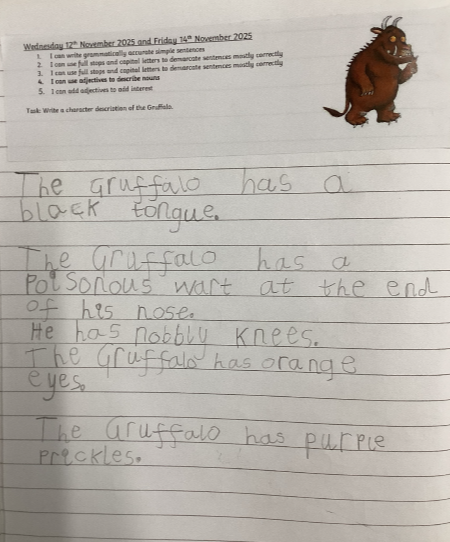 Wednesday 12th November 2025 and Friday 14th November 2025
1. I can write grammatically accurate simple sentences
2. I can use full stops and capital letters to demarcate sentences mostly correctly
3. I can use full stops and capital letters to demarcate sentences mostly correctly
4. I can use adjectives to describe nouns
5. I can add adjectives to add interest
Task: Write a character description of the Gruffalo.
The Gruffalo has a
black tongue.
The Gruffalo has a
Poisonous wart at the end
of his nose.
He has nobbly knees.
The Gruffalo has orange
eyes.
The Gruffalo has purple
prickles.